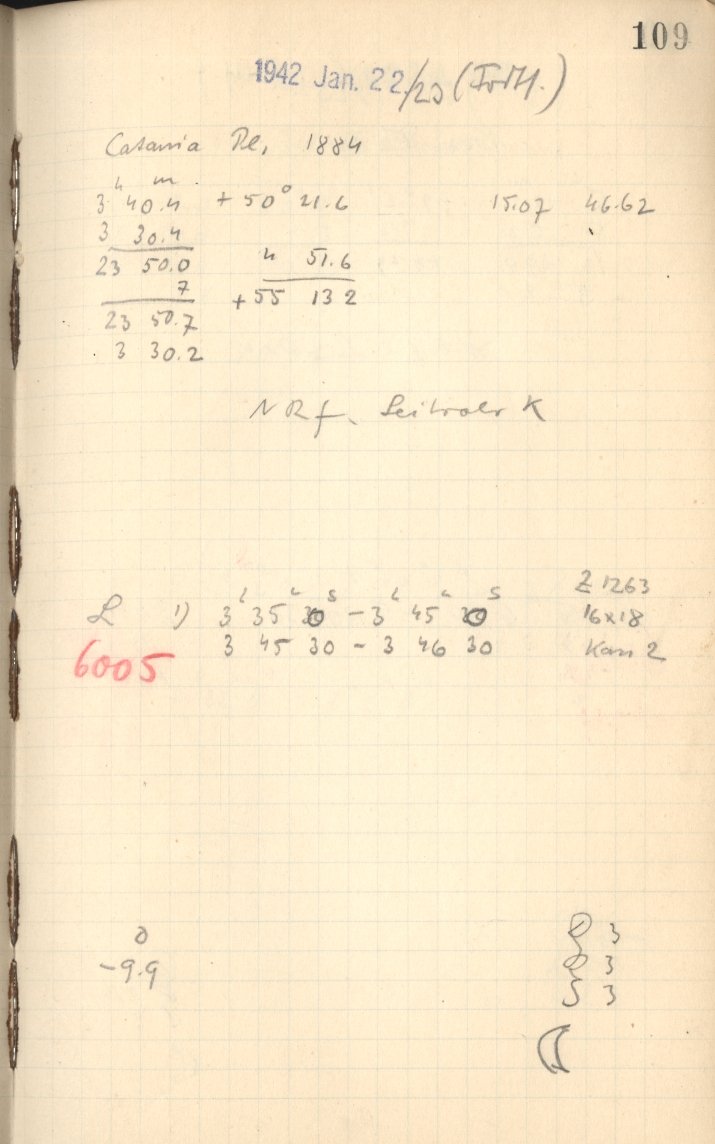 109
1942 Jan. 22/23 (Forts.)
Catania Pl, 1884
h m
3 40.4 +50° 21.6 15.07 46.62
3 30.4
23 50.0 4 51.6
7 +55 13 2
23 50.7
3 30.2
NRf. Leitrohr K
h m s h m s
L 1) 3 35 30 – 3 45 30
Z 1263
16x18
6005 3 45 30 – 3 46 30 Kass 2
0
-9.9
3
3
S 3